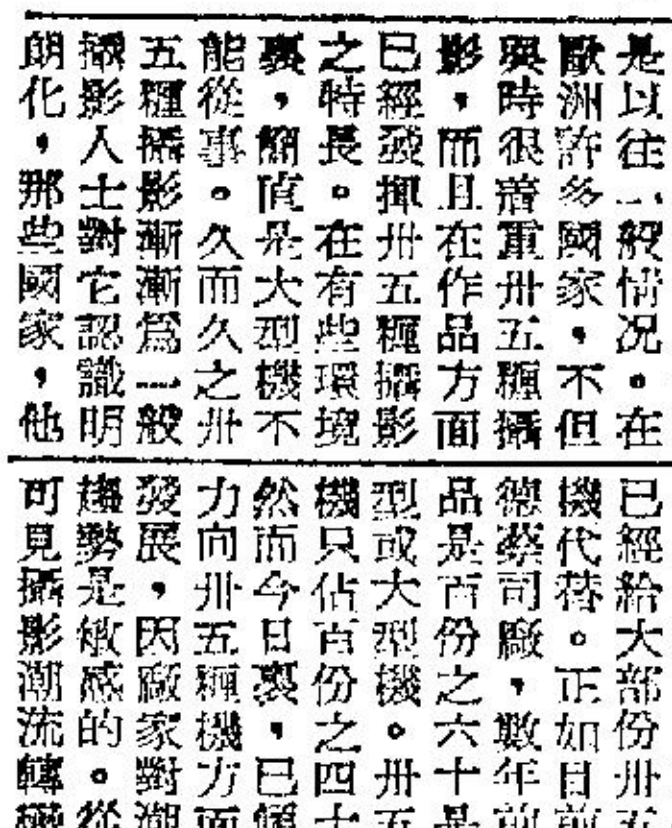 是以往一般情况。在
歐洲許多國家,不但
與時很着重卅五糎攝
影,而且在作品方面
已經發揮卅五糎攝影
之特長。在有些環境
裏,簡直是大型機不
能從事。久而久之卅
五糎攝影漸漸爲一般
攝影人士對它認識明
朗化,那些國家,他
已經給大部份卅
機代替。正如目前
德蔡司廠,數年前
品是百份之六十是
型或大型機。卅五
機只佔百份之四十
然而今日裏,已
力向卅五糎機方面
發展,因廠家對潮
趨勢是敏感的。從
可見攝影潮流轉變